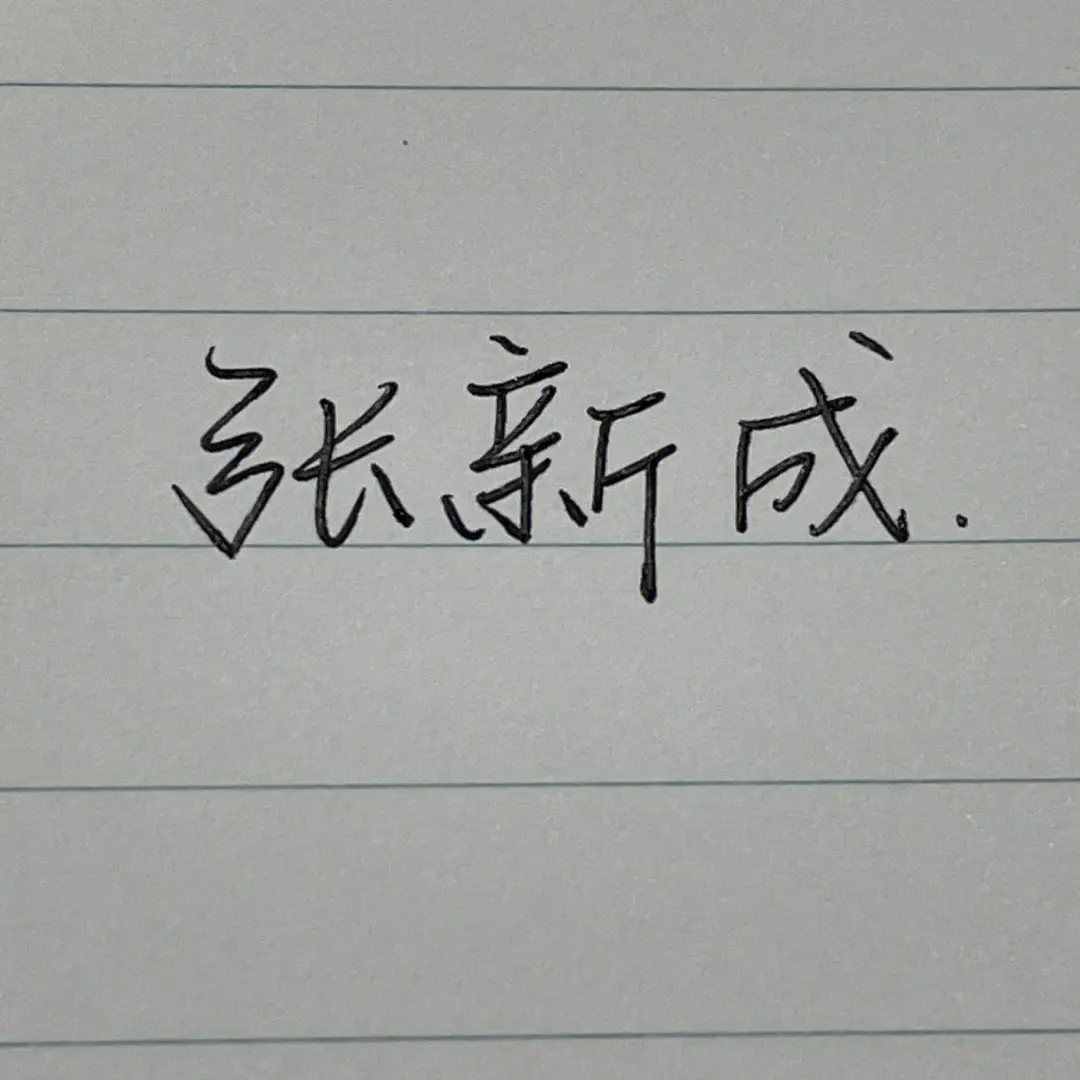 张新成.